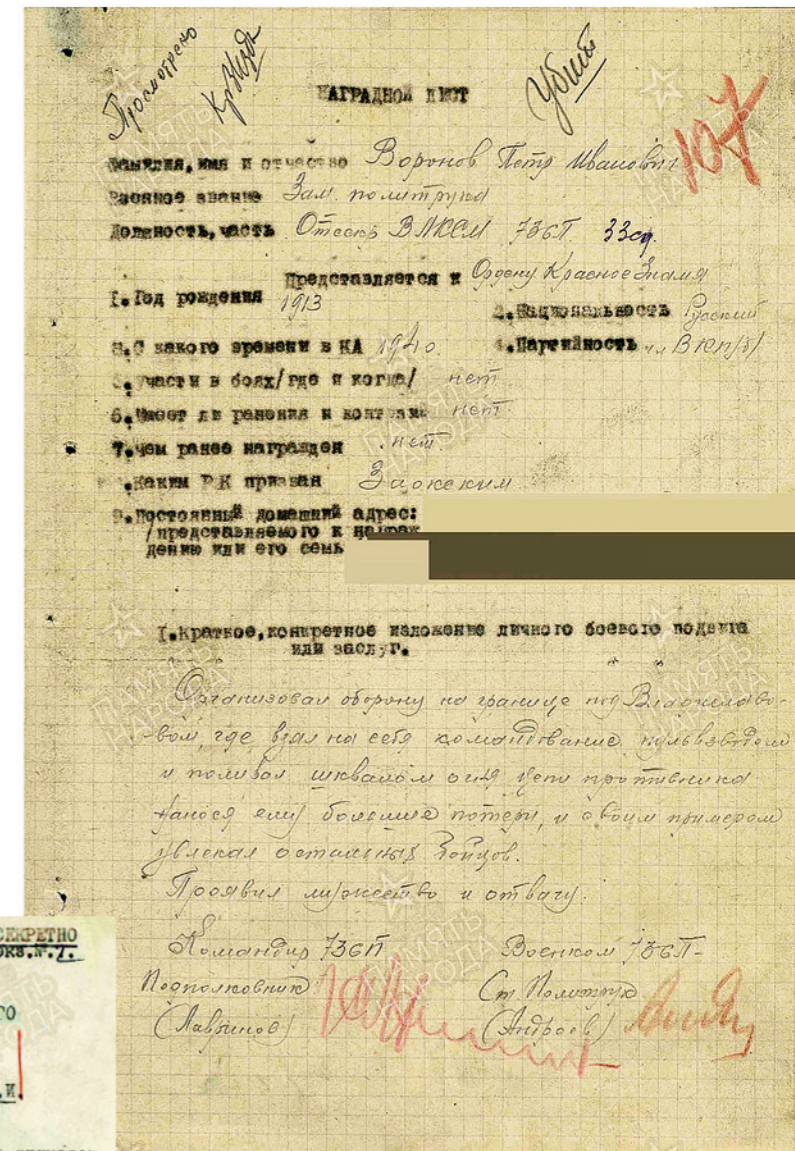 Просмотрено
Убит
НАГРАДНОЙ ЛИСТ
107
Фамилия, имя и отчество Воронов Петр Иванович
Военное звание Зам. политрука
Должность, часть Отсекр ВЛКСМ 73бСП 33сд.
Представляется к Ордену Красное Знамя
1. Год рождения 1913
2. Национальность Русский
3. С какого времени в КА 1940
4. Партийность чл ВКП/б/
5. Участи в боях/где и когда/ нет
6. Имеет ли ранения и контузии нет
7. Чем ранее награжден нет.
Каким РК призван Заокским
9. Постоянный домашний адрес:
/представляемого к награж
дению или его семь
I. Краткое, конкретное изложение личного боевого подвига
или заслуг.
Организовал оборону на границе под
вом, где взял на себя командование пульвзводом
и поливал шквалом огня цепи противника
нанося ему большие потери, и своим примером
увлекал остальных бойцов.
Проявил мужество и отвагу.
Командир 73бП Военком 73бП-
Подполковник Ст. Политрук
СЕКРЕТНО
ЭКЗ.№.1.
ГО
.И.
ПАМЯТЬ
НАРОДА